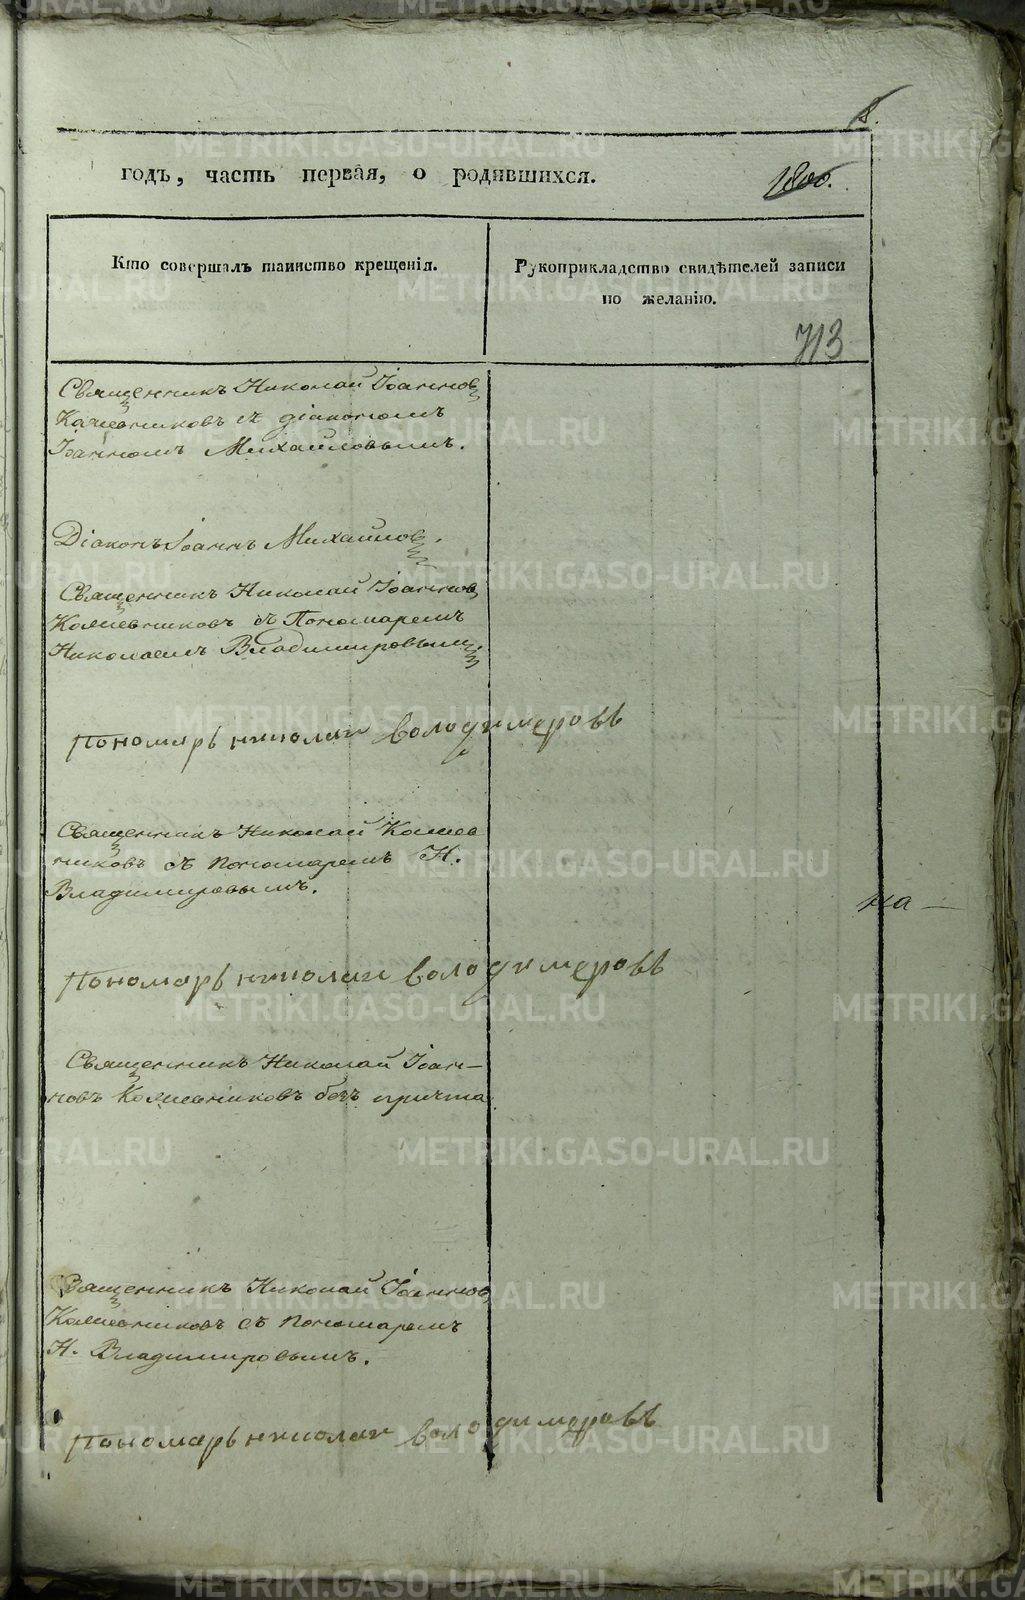 8.
годъ, часть первая, о родившихся.
1806.
Кто совершалъ таинство крещенія.
Рукоприкладство свидѣтелей записи
по желанію.
713
Священникъ Николай Іоаннов
съ діакономъ
Іоанномъ Михайловымъ.
Діаконъ Іоаннъ Михайлов.
Священникъ Николай Іоаннов
Колмевниковъ съ Пономаремъ
Николаемъ Владимировымъ
пономарь николаи володимеровъ
Священникъ Николай
никовъ съ пономаремъ Н.
Владимировымъ.
на —
пономарь николаи володимеровъ
Священникъ Николай Іоан-
новъ безъ причта
Священникъ Николай Іоаннов
съ пономаремъ
Н. Владимировымъ.
пономарь николаи володимеровъ
METRIKI.GASO-URAL.RU